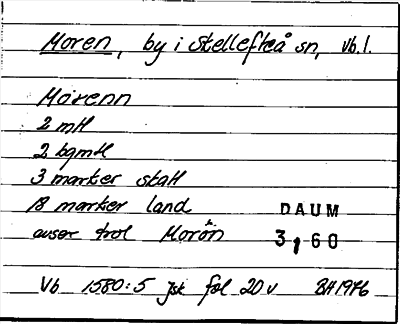 Moren, by i Skellefteå sn, Vb.l.
Morenn
2 mtl
2 bgmtl
3 marker skatt
18 marker land
avser trol Morön
DAUM
3,60
Vb 1580:5 jsk fol 20 v BH 1976